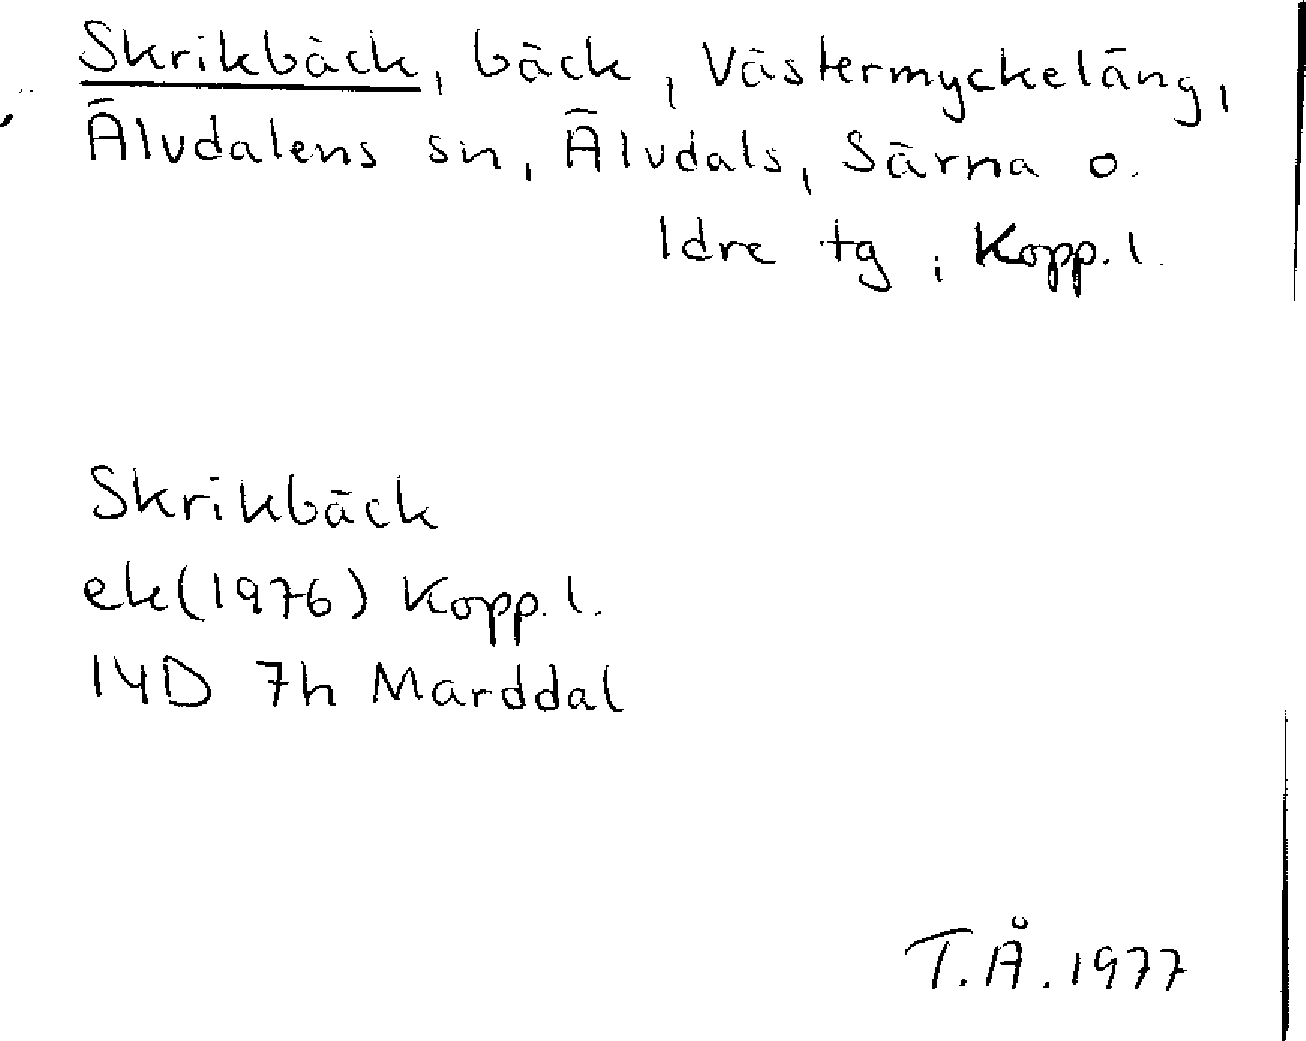 Skrikbäck, bäck, Västermyckeläng,
Älvdalens sn, Älvdals, Särna o.
Idre tg, Kopp. l.
Skrikbäck
ek(1976) Kopp. l.
14D 7h Marddal
T.Å. 1977